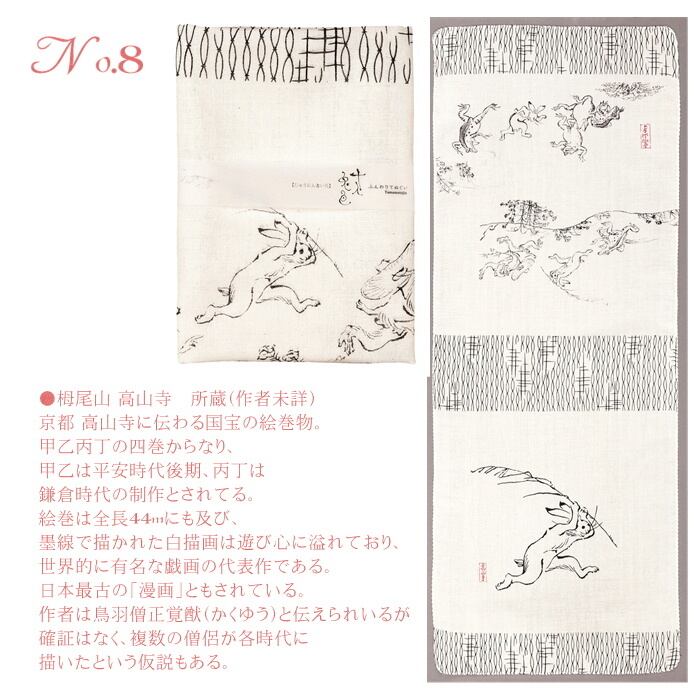 No.8
【じゅうにんといろ】
ふんわりてぬぐい
Yamanouju
●栂尾山 高山寺　所蔵(作者未詳)
京都 高山寺に伝わる国宝の絵巻物。
甲乙丙丁の四巻からなり、
甲乙は平安時代後期、丙丁は
鎌倉時代の制作とされてる。
絵巻は全長44mにも及び、
墨線で描かれた白描画は遊び心に溢れており、
世界的に有名な戯画の代表作である。
日本最古の「漫画」ともされている。
作者は鳥羽僧正覚猷(かくゆう)と伝えられいるが
確証はなく、複数の僧侶が各時代に
描いたという仮説もある。